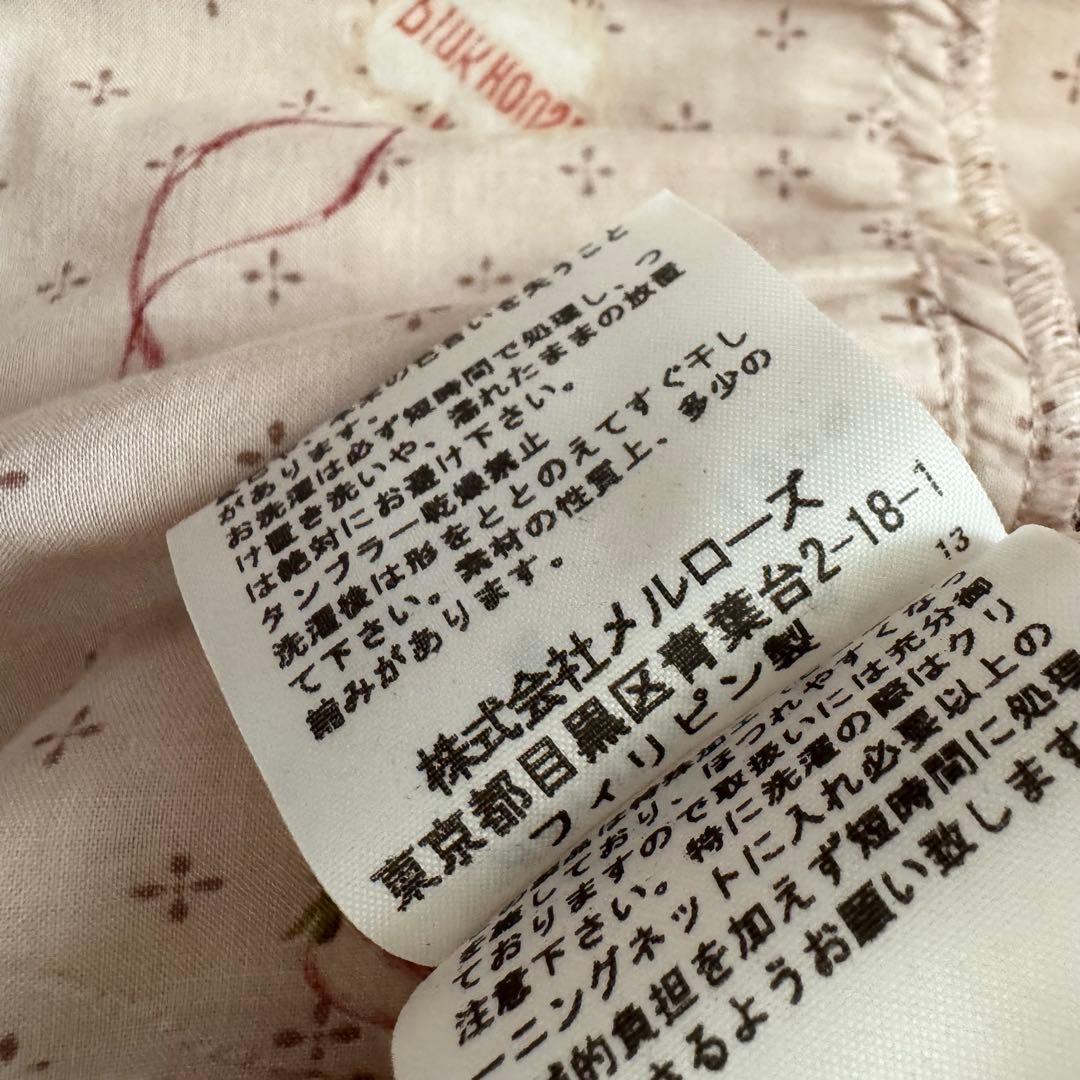 PINK HOUS
色合いを失うこと
があります。
お洗濯は必ず短時間で処理し、つ
け置き洗いや、濡れたままの放置
は絶対にお避け下さい。
タンブラー乾燥禁止
洗濯後は形をととのえてすぐ干し
て下さい。素材の性質上、多少の
縮みがあります。
株式会社メルローズ
東京都目黒区青葉台2-18-1
フィリピン製
13
ほつれやすくなっ
ておりますので取扱いには充分御
注意下さい。特に洗濯の際はクリ
ーニングネットに入れ必要以上の
的負担を加えず短時間に処理
さるようお願い致します